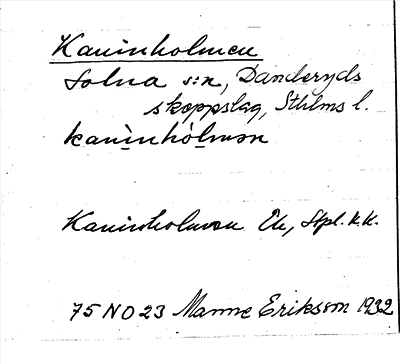 Kaninholmen
Solna s:n, Danderyds
skeppslag, Sthlms l.
kaninhòlmən
Kaninholmen Ek, Spl. k.k.
75 NO 23 Manne Eriksson 1932